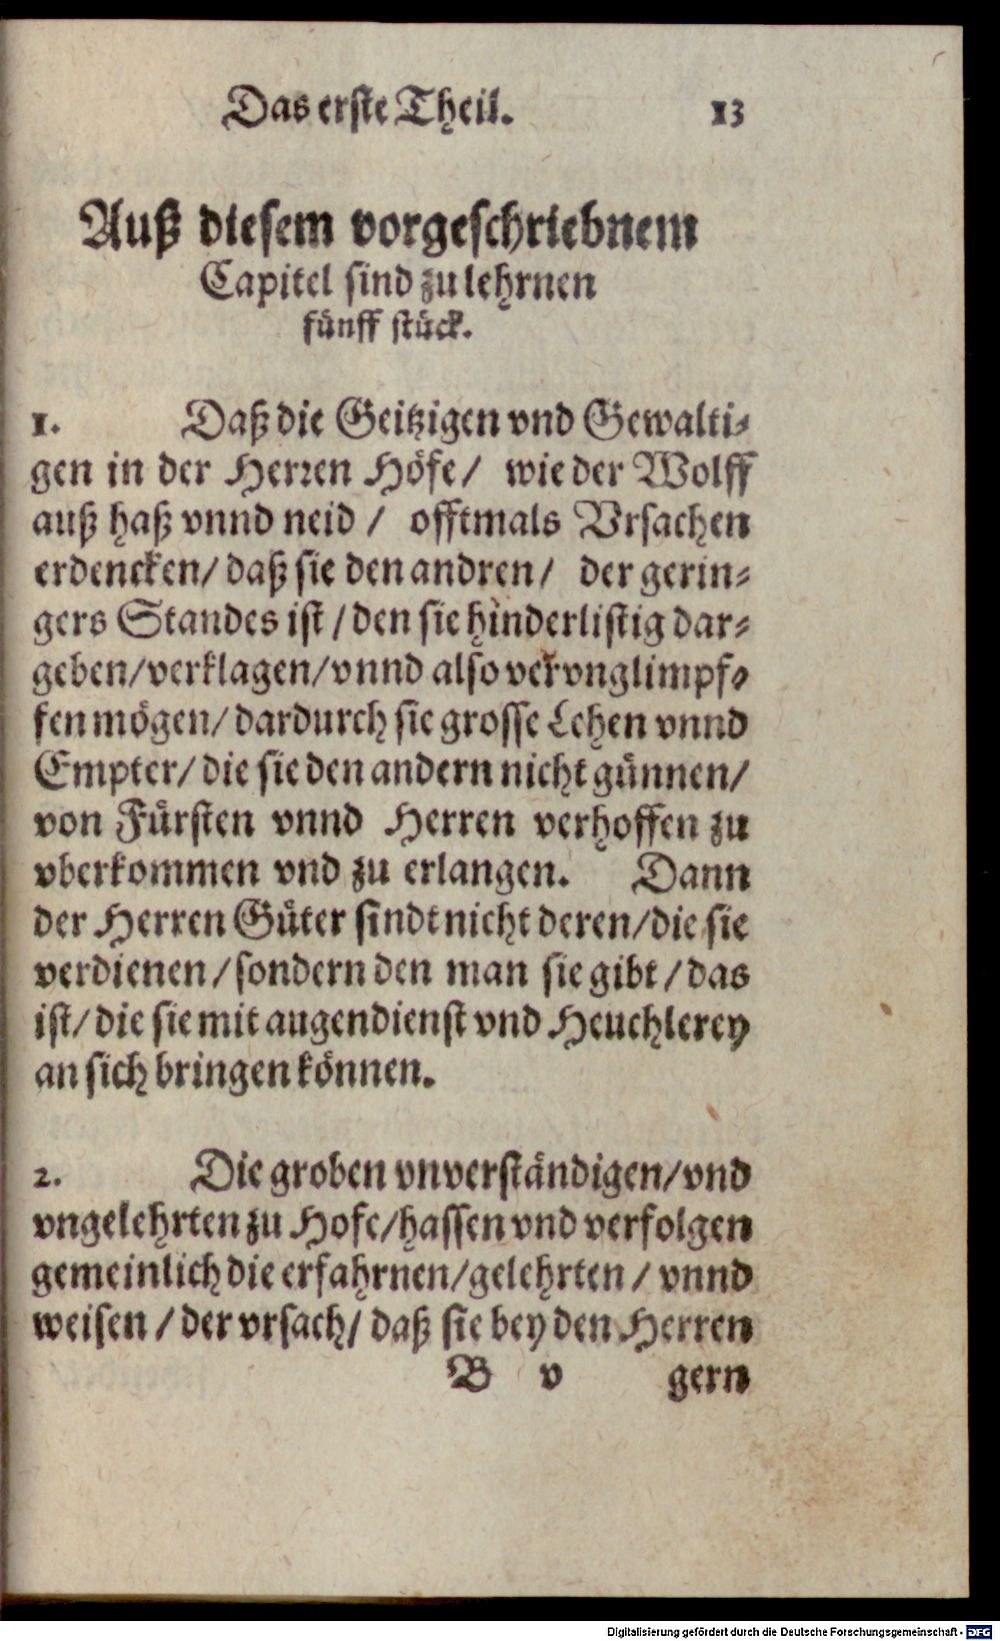 Das erste Theil. 13
Auß diesem vorgeschriebnem
Capitel sind zu lehrnen
fünff stück.
1. Daß die Geitzigen vnd Gewalti-
gen in der Herren Höfe/ wie der Wolff
auß haß vnnd neid / offtmals Vrsachen
erdencken/ daß sie den andren / der gerin-
gers Standes ist / den sie hinderlistig dar-
geben/verklagen/vnnd also verunglimpf-
fen mögen/ dardurch sie grosse Lehen vnnd
Empter/ die sie den andern nicht günnen/
von Fürsten vnnd Herren verhoffen zu
vberkommen vnd zu erlangen. Dann
der Herren Güter sindt nicht deren/die sie
verdienen/sondern den man sie gibt / das
ist/ die sie mit augendienst vnd Heuchlerey
an sich bringen können.
2. Die groben vnverständigen/vnd
vngelehrten zu Hofe/hassen vnd verfolgen
gemeinlich die erfahrnen/gelehrten / vnnd
weisen / der vrsach/ daß sie bey den Herren
B v gern
Digitalisierung gefördert durch die Deutsche Forschungsgemeinschaft - DFG